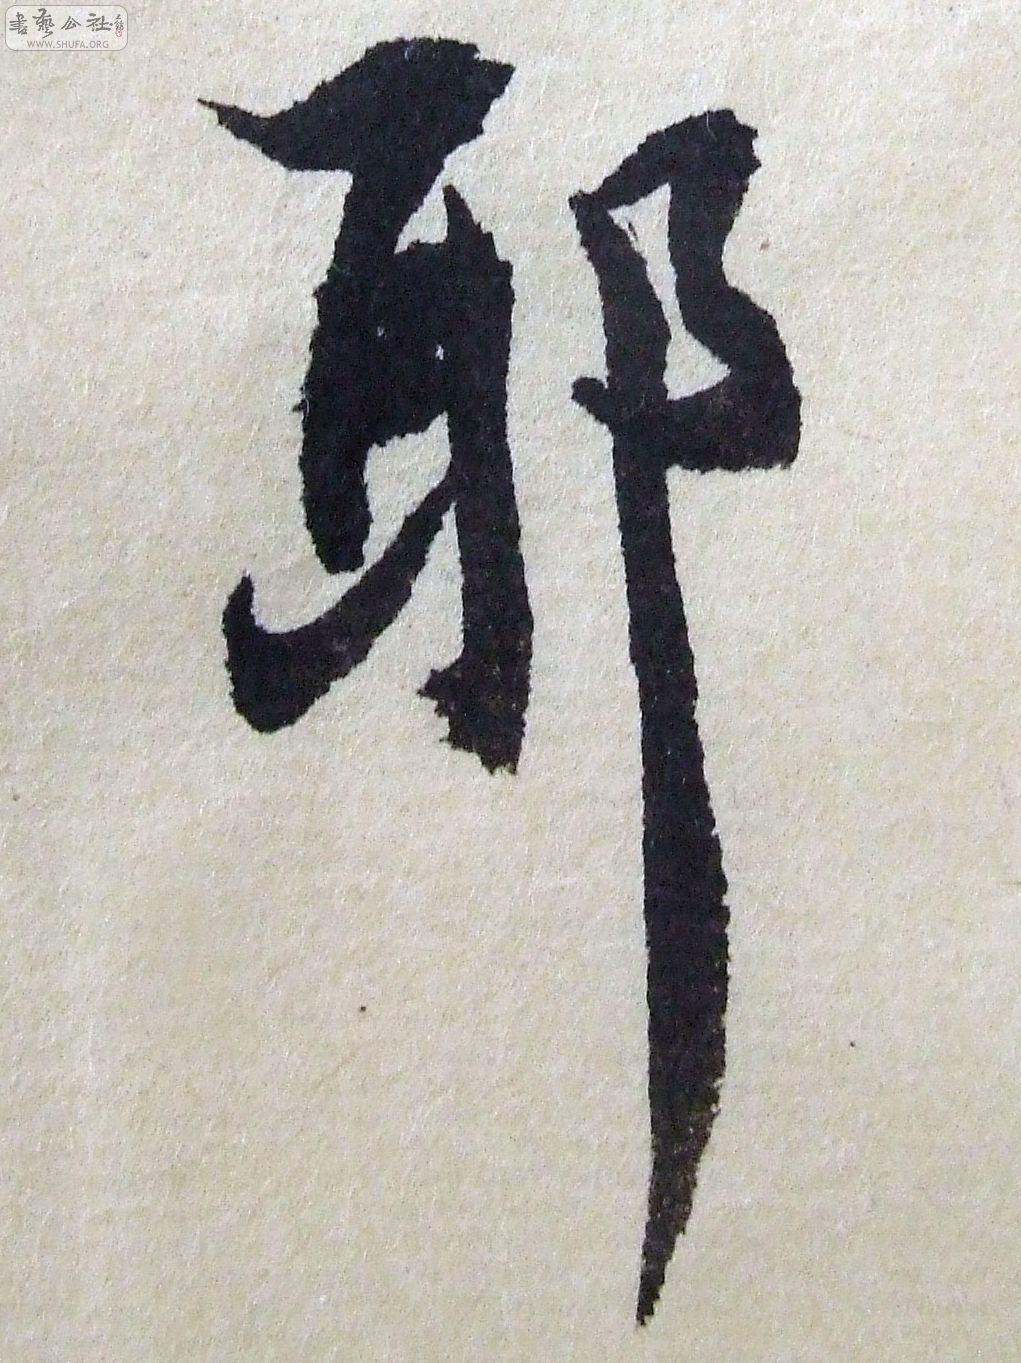 書藝公社
WWW.SHUFA.ORG
耶